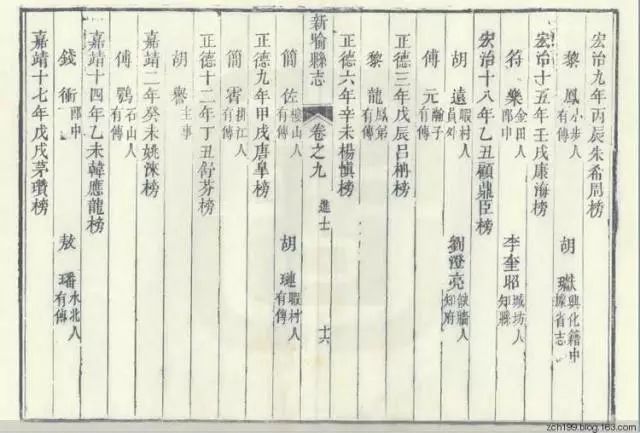 宏治九年丙辰朱希周榜
黎鳳 小步人 有傳 胡 興化籍中 據省志
宏治十五年壬戌康海榜
符樂 金田人 郎中 李奎昭 城坊人 知縣
宏治十八年乙丑顧鼎臣榜
胡遠 睱村人 員外 劉澄亮 牆人 知府
傅元 瀚子 有傳
正德三年戊辰呂柟榜
黎龍 鳳弟 有傳
正德六年辛未楊慎榜
新喻縣志 卷之九 進士 十六
簡佐 樓山人 有傳 胡璉 睱村人 有傳
正德九年甲戌唐皋榜
簡霄 江人 有傳
正德十二年丁丑舒芬榜
胡譽 主事
嘉靖二年癸未姚淶榜
傅鶚 石山人 有傳
嘉靖十四年乙未韓應龍榜
錢衝 郎中 敖璠 水北人 有傳
嘉靖十七年戊戌茅瓚榜
zch199.blog.163.com